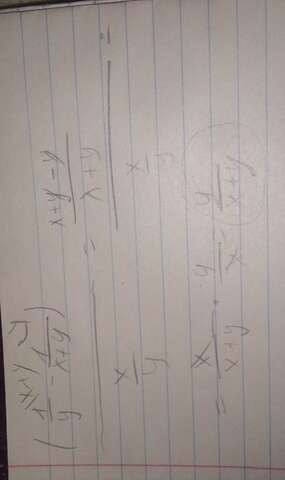 x+y y
(1/y - 1/x+y) / x/y = x+y-y/x+y / x/y =
= x/x+y · y/x = y/x+y